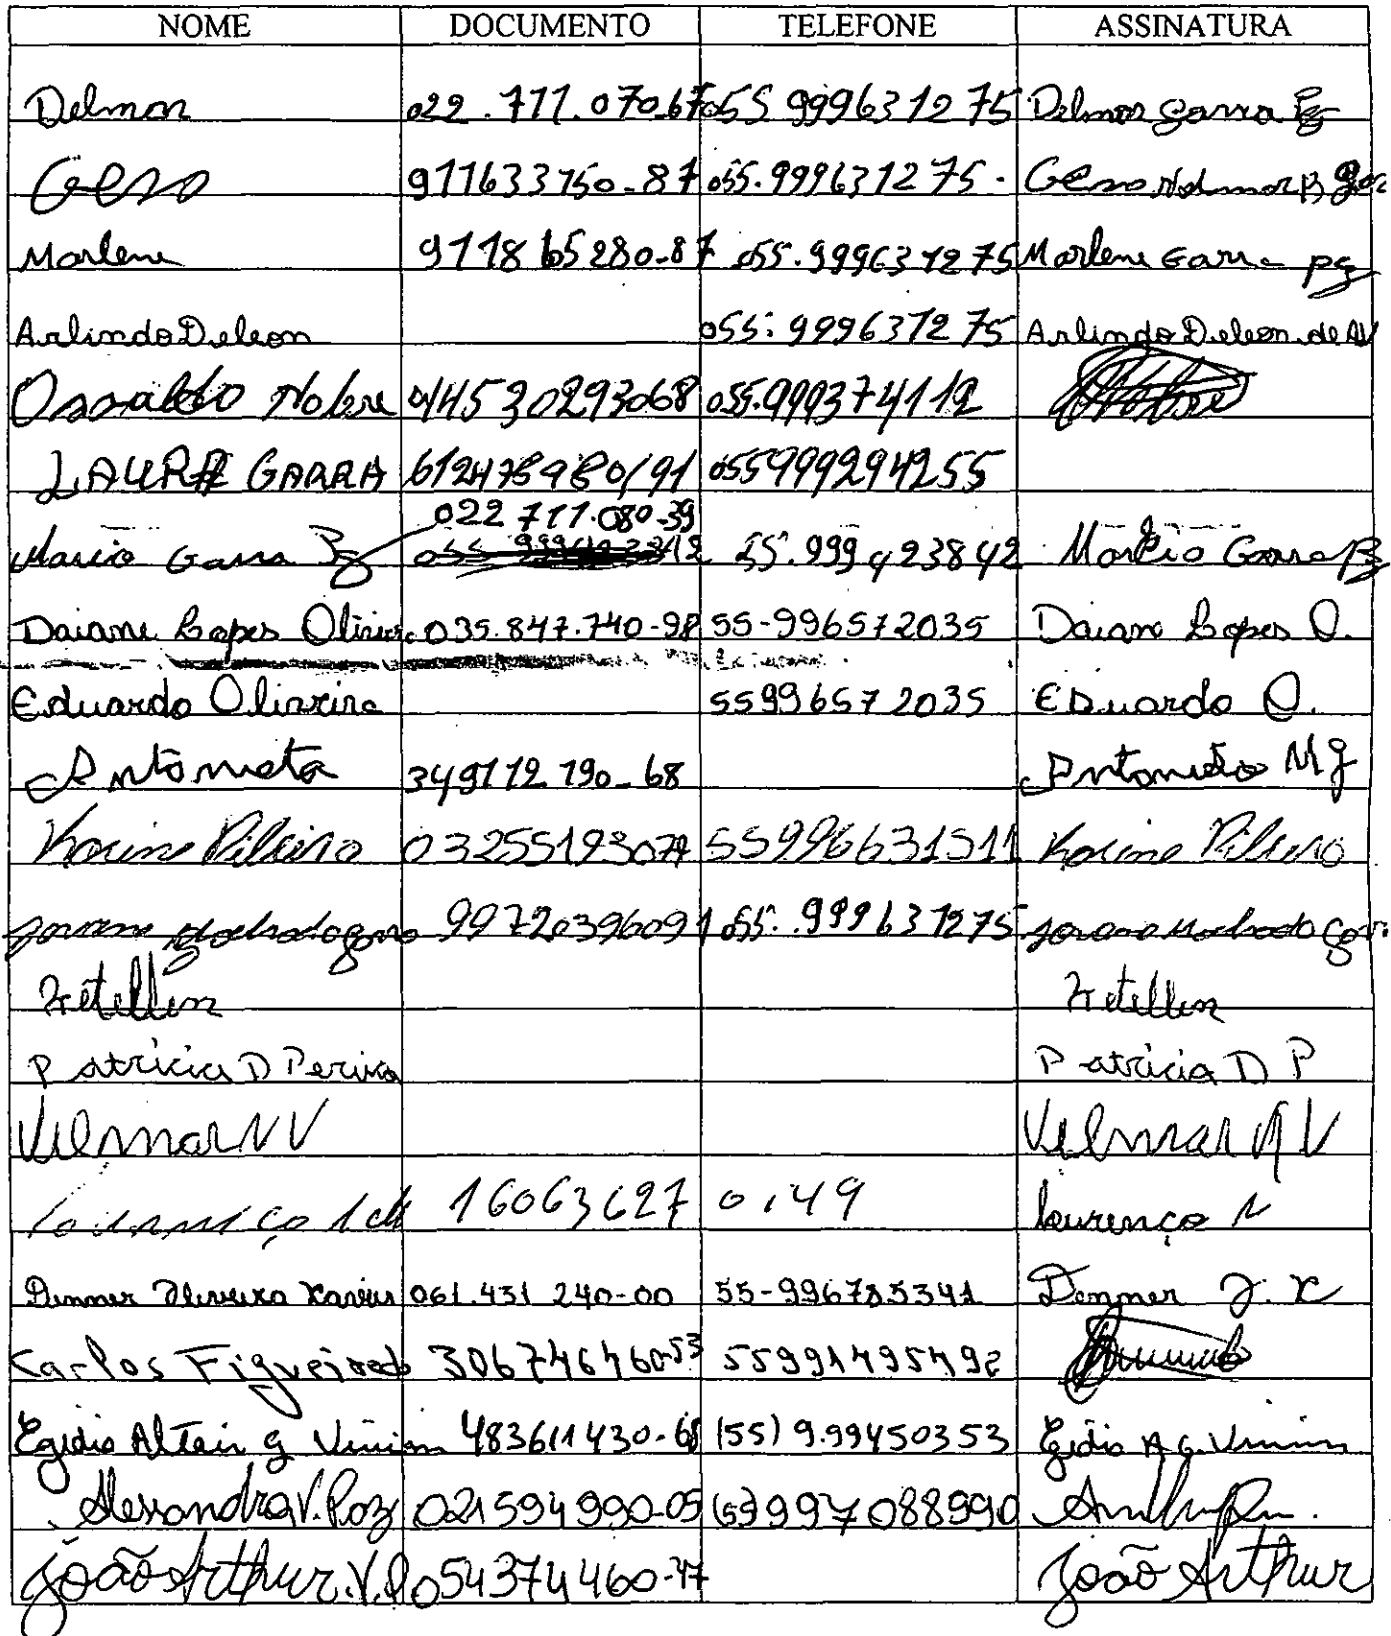 NOME DOCUMENTO TELEFONE ASSINATURA
Delmar 022.711.070-67 055 999631275 Delmar Garra
Geso 911633750-87 055.999631275. Geso
Marlene 911865280-87 055.999631275 Marlene Garra
Arlindo Deleon 055:999637275 Arlindo Deleon de
Osvaldo Nobre 44530293068 055.999374112
LAURA GARRA 612478980/91 055999294255
022 711.080-39
Marcio Garra 55.999423842 Marcio Garra
Daiane Lopes Oliveira 035.847.740-98 55-996572035 Daiane Lopes O.
Eduardo Oliveira 55996572035 Eduardo O.
Antonieta 349112190-68
Karine Ribeiro 03255193074 55996631511 Karine Ribeiro
Machado 99720396091 055.999631275 Machado
Ketellen Ketellen
Patricia D Pereira Patricia D P
Vilmar N V Vilmar N V
16063627 0149 Lourenço N
Denner Oliveira Xavier 061.431 240-00 55-996785341 Denner
Karlos Figueiredo 306746460-53 55991495492
Egidio Altair G Vinim 483611430-68 (55) 9.99450353 Egidio A G. Vinim
Alessandra V. Poz 021594990-05 (55) 997088990
João Arthur.V.P 054374460-47 João Arthur